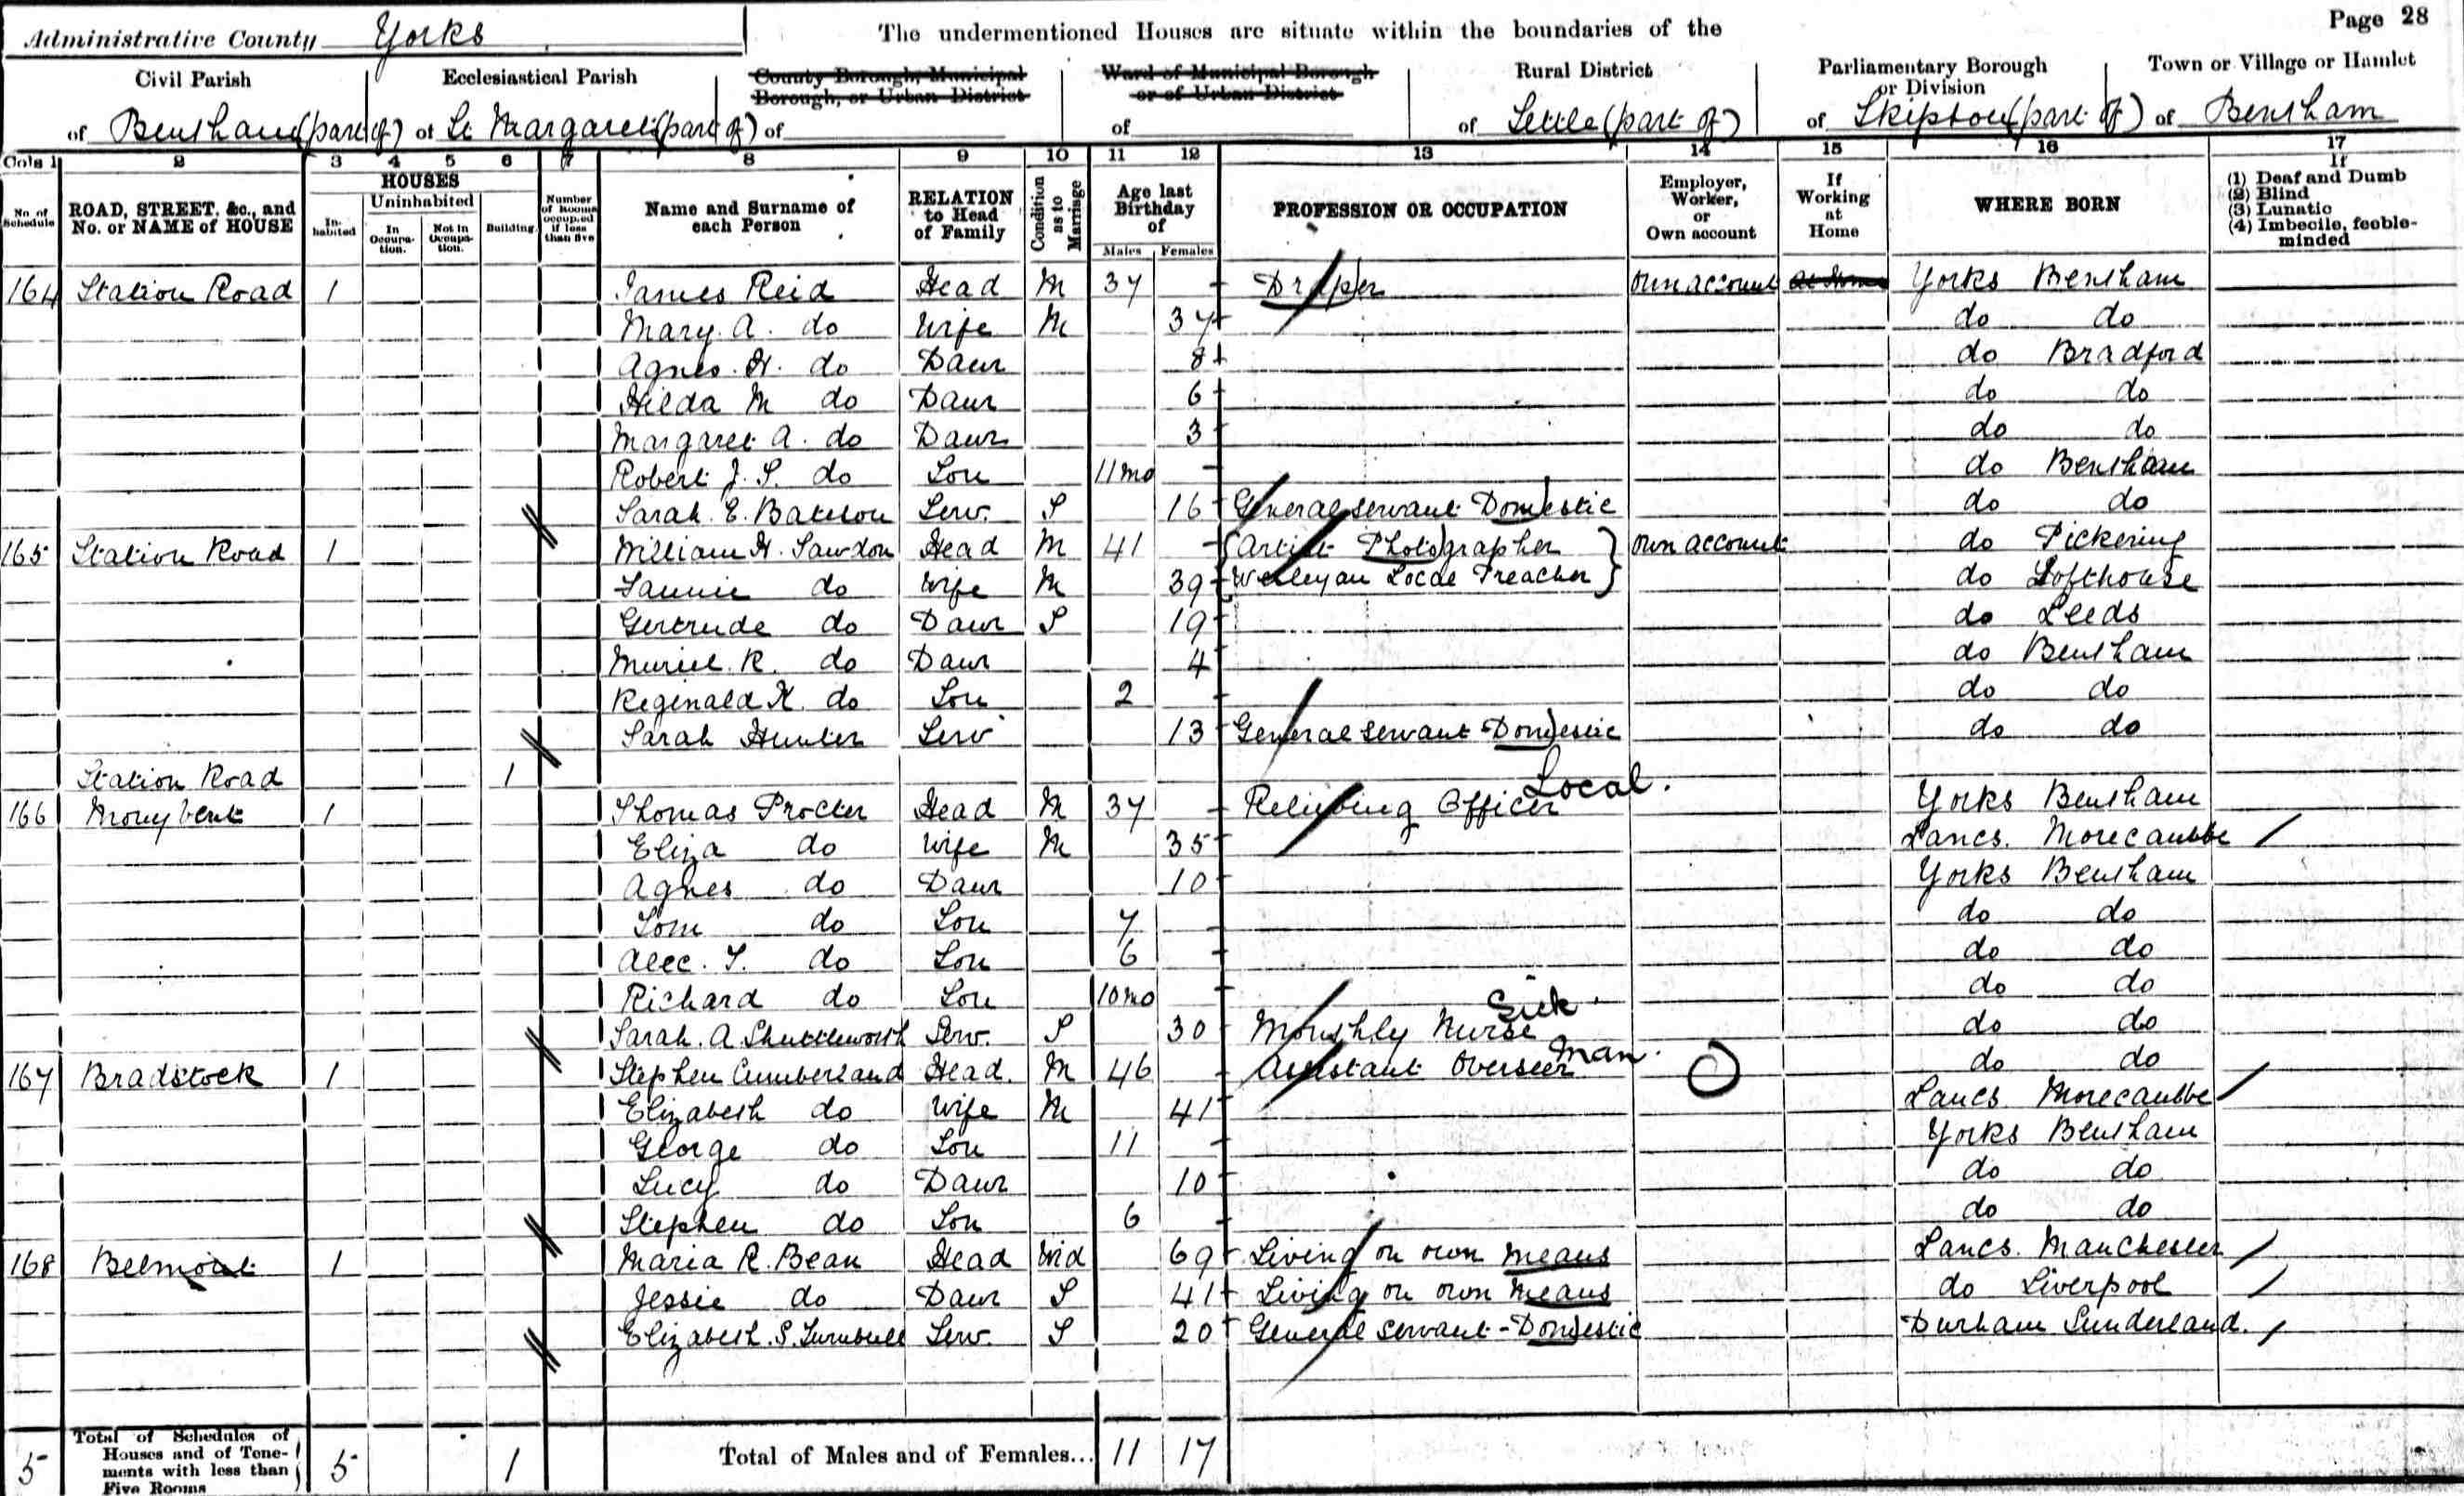 Page 28
Administrative County Yorks
The undermentioned Houses are situate within the boundaries of the
Civil Parish
Ecclesiastical Parish
County Borough, Municipal Borough, or Urban District
Ward of Municipal Borough or of Urban District
Rural District
Parliamentary Borough or Division
Town or Village or Hamlet
of Bentham (part of) of St Margarets (part of) of of of Settle (part of) of Skipton (part of) of Bentham
Cols 1 2 3 4 5 6 7 8 9 10 11 12 13 14 15 16 17
No. of Schedule
ROAD, STREET, &c., and No. or NAME of HOUSE
HOUSES
Inhabited
Uninhabited
In Occupation.
Not in Occupation.
Building
Number of Rooms occupied if less than five
Name and Surname of each Person
RELATION to Head of Family
Condition as to Marriage
Age last Birthday of
Males Females
PROFESSION OR OCCUPATION
Employer, Worker, or Own account
If Working at Home
WHERE BORN
If
(1) Deaf and Dumb
(2) Blind
(3) Lunatic
(4) Imbecile, feeble-minded
164 Station Road 1 James Reid Head M 37 Draper own account at home Yorks Bentham
Mary A. do Wife M 37 do do
Agnes H. do Daur 8 do Bradford
Hilda M do Daur 6 do do
Margaret A. do Daur 3 do do
Robert J. S. do Son 11mo do Bentham
Sarah E. Bateson Serv. S 16 General servant Domestic do do
165 Station Road 1 William H. Sawdon Head M 41 Artist Photographer own account do Pickering
Fannie do Wife M 39 Wesleyan Local Preacher do Lofthouse
Gertrude do Daur S 19 do Leeds
Muriel R. do Daur 4 do Bentham
Reginald H. do Son 2 do do
Sarah Hunter Serv 13 General servant Domestic do do
Station Road 1
166 Monybent 1 Thomas Procter Head M 37 Relieving Officer Local. Yorks Bentham
Eliza do Wife M 35 Lancs. Morecambe
Agnes do Daur 10 Yorks Bentham
Tom do Son 7 do do
Alec. T. do Son 6 do do
Richard do Son 10mo do do
Sarah. A Shuttleworth Serv. S 30 Monthly Nurse Sick do do
167 Bradstock 1 Stephen Cumberland Head. M 46 Assistant Overseer Man. do do
Elizabeth do Wife M 41 Lancs Morecambe
George do Son 11 Yorks Bentham
Lucy do Daur 10 do do
Stephen do Son 6 do do
168 Belmont 1 Maria R. Bean Head Wid 69 Living on own means Lancs. Manchester
Jessie do Daur S 41 Living on own means do Liverpool
Elizabeth. S. Turnbull Serv. S 20 General servant - Domestic Durham Sunderland.
5 Total of Schedules of Houses and of Tenements with less than Five Rooms 5 1 Total of Males and of Females... 11 17